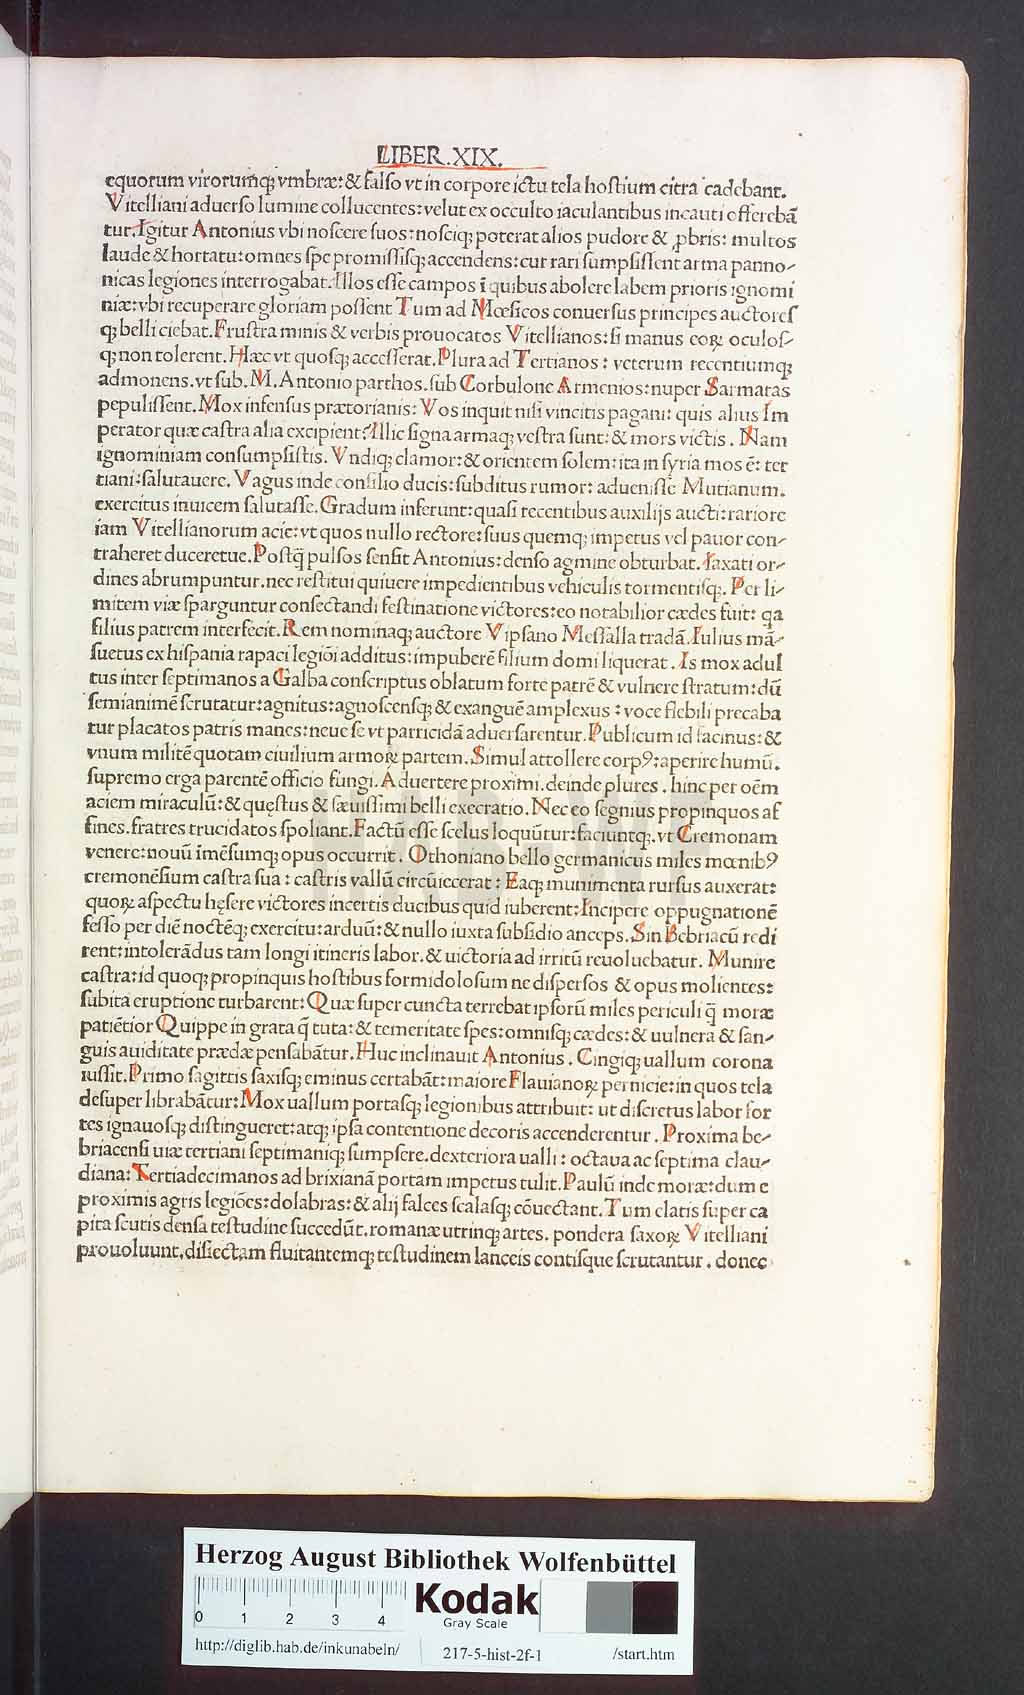 LIBER.XIX.
equorum virorumq; vmbræ:& falſo vt in corpore ictu tela hoſtium citra cadebant.
Vitelliani aduerſo lumine collucentes:velut ex occulto iaculantibus incauti offerebā
tur.Igitur Antonius vbi noſcere ſuos:noſciq; poterat alios pudore & ꝓbris: multos
laude & hortatu:omnes ſpe promiſſiſq; accendens:cur rari ſumpſiſſent arma panno-
nicas legiones interrogabat.Illos eſſe campos ī quibus abolere labem prioris ignomi
niæ:vbi recuperare gloriam poſſent Tum ad Mœſicos conuerſus principes auctoreſ
q; belli ciebat.Fruſtra minis & verbis prouocatos Vitellianos:ſi manus eoꝝ oculoſ-
q; non tolerent.Hæc vt quoſq; acceſſerat.Plura ad Tertianos : veterum recentiumq;
admonens.vt ſub.M.Antonio parthos.ſub Corbulone Armenios:nuper Sarmatas
pepuliſſent.Mox infenſus prætorianis: Vos inquit niſi vincitis pagani: quis alius Im
perator quæ caſtra alia excipient?Illic ſigna armaq; veſtra ſunt:& mors victis . Nam
ignominiam conſumpſiſtis. Vndiq; clamor:& orientem ſolem:ita in ſyria mos ē: ter
tiani:ſalutauere. Vagus inde conſilio ducis:ſubditus rumor: adueniſſe Mutianum.
exercitus inuicem ſalutaſſe.Gradum inferunt:quaſi recentibus auxilijs aucti:rariore
iam Vitellianorum acie:vt quos nullo rectore:ſuus quemq; impetus vel pauor con-
traheret duceretue.Poſtq̄ pulſos ſenſit Antonius:denſo agmine obturbat.laxati or-
dines abrumpuntur.nec reſtitui quiuere impedientibus vehiculis tormentiſq;. Per li-
mitem viæ ſparguntur conſectandi feſtinatione victores:eo notabilior cædes fuit: qa
filius patrem interfecit.Rem nominaq; auctore Vipſano Meſſalla tradā.Iulius mā-
ſuetus ex hiſpania rapaci legiōi additus:impuberē filium domi liquerat . Is mox adul
tus inter ſeptimanos a Galba conſcriptus oblatum forte patrē & vulnere ſtratum:dū
ſemianimē ſcrutatur:agnitus:agnoſcenſq; & exanguē amplexus : voce flebili precaba
tur placatos patris manes:neue ſe vt parricidā aduerſarentur.Publicum id facinus:&
vnum militē quotam ciuilium armoꝝ partem.Simul attollere corpꝰ:aperire humū.
ſupremo erga parentē officio fungi.Aduertere proximi.deinde plures . hinc per oēm
aciem miraculū:& queſtus & ſæuiſſimi belli execratio.Nec eo ſegnius propinquos af
fines.fratres trucidatos ſpoliant.Factū eſſe ſcelus loquūtur:faciuntq;.vt Cremonam
venere:nouū īmēſumq; opus occurrit . Othoniano bello germanicus miles mœnibꝰ
cremonēſium caſtra ſua : caſtris vallū circūiecerat : Eaq; munimenta rurſus auxerat:
quoꝝ aſpectu hęſere victores incertis ducibus quid iuberent:Incipere oppugnationē
feſſo per diē noctēq; exercitu:arduū:& nullo iuxta ſubſidio anceps.Sin Bebriacū redi
rent:intolerādus tam longi itineris labor.& uictoria ad irritū reuoluebatur. Munire
caſtra:id quoq; propinquis hoſtibus formidoloſum ne diſperſos & opus molientes:
ſubita eruptione turbarent:Quæ ſuper cuncta terrebat ipſorū miles periculi q̄ moræ
patiētior Quippe in grata q̄ tuta:& temeritate ſpes:omniſq; cædes:& uulnera & ſan-
guis auiditate prædæ penſabātur.Huc inclinauit Antonius . Cingiq; uallum corona
iuſſit.Primo ſagittis ſaxiſq; eminus certabāt:maiore Flauianoꝝ pernicie:in quos tela
deſuper librabātur:Mox uallum portaſq; legionibus attribuit: ut diſcretus labor for
tes ignauoſq; diſtingueret:atq; ipſa contentione decoris accenderentur . Proxima be-
briacenſi uiæ tertiani ſeptimaniq; ſumpſere.dexteriora ualli : octaua ac ſeptima clau-
diana:Tertiadecimanos ad brixianā portam impetus tulit.Paulū inde moræ:dum e
proximis agris legiōes:dolabras:& alij falces ſcalaſq; cōuectant.Tum elatis ſuper ca
pita ſcutis denſa teſtudine ſuccedūt.romanæ utrinq; artes. pondera ſaxoꝝ Vitelliani
prouoluunt.diſiectam fluitantemq; teſtudinem lanceis contiſque ſcrutantur . donec
HAB-WF
Herzog August Bibliothek Wolfenbüttel
0 1 2 3 4
Kodak
Gray Scale
http://diglib.hab.de/inkunabeln/ 217-5-hist-2f-1 /start.htm